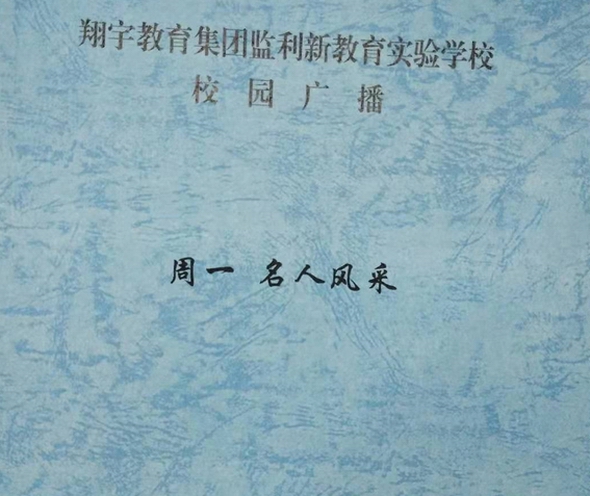 翔宇教育集团监利新教育实验学校
校园广播
周一 名人风采